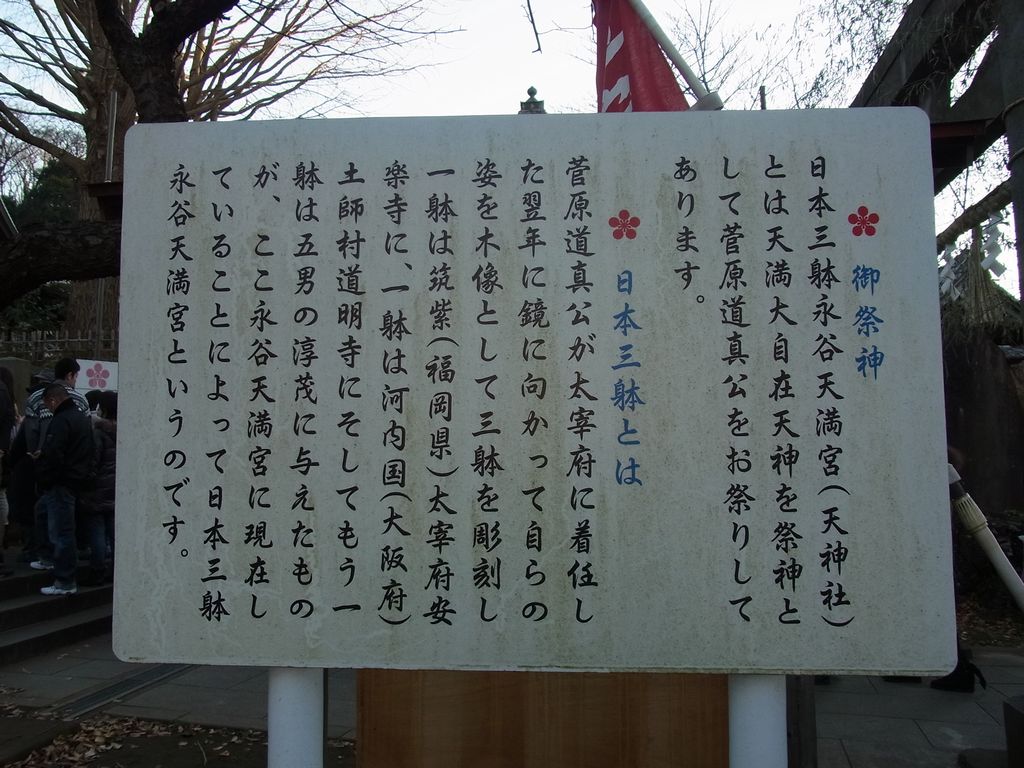 御祭神
日本三躰永谷天満宮(天神社)
とは天満大自在天神を祭神と
して菅原道真公をお祭りして
あります。
日本三躰とは
菅原道真公が太宰府に着任し
た翌年に鏡に向かって自らの
姿を木像として三躰を彫刻し
一躰は筑紫(福岡県)太宰府安
楽寺に、一躰は河内国(大阪府)
土師村道明寺にそしてもう一
躰は五男の淳茂に与えたもの
が、ここ永谷天満宮に現在し
ていることによって日本三躰
永谷天満宮というのです。